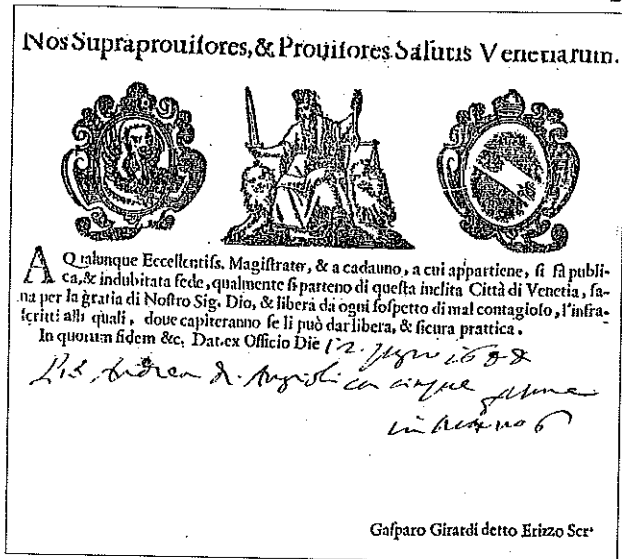 Nos Supraprouiſores, & Prouiſores Salutis Venetiarum.
A Qualunque Eccellentiſs. Magiſtrater, & a cadauno, a cui appartiene, ſi fà publi-
ca, & indubitata fede, qualmente ſi parteno di queſta inclita Città di Venetia, ſa-
na per la gratia di Noſtro Sig. Dio, & libera da ogni ſoſpetto di mal contagioſo, l'infra-
ſcritti alli quali, doue capiteranno ſe li può dar libera, & ſicura prattica.
In quorum fidem &c. Dat. ex Officio Die 12
Andrea con cinque
in 6
Gaſparo Girardi detto Erizzo Scrᵃ